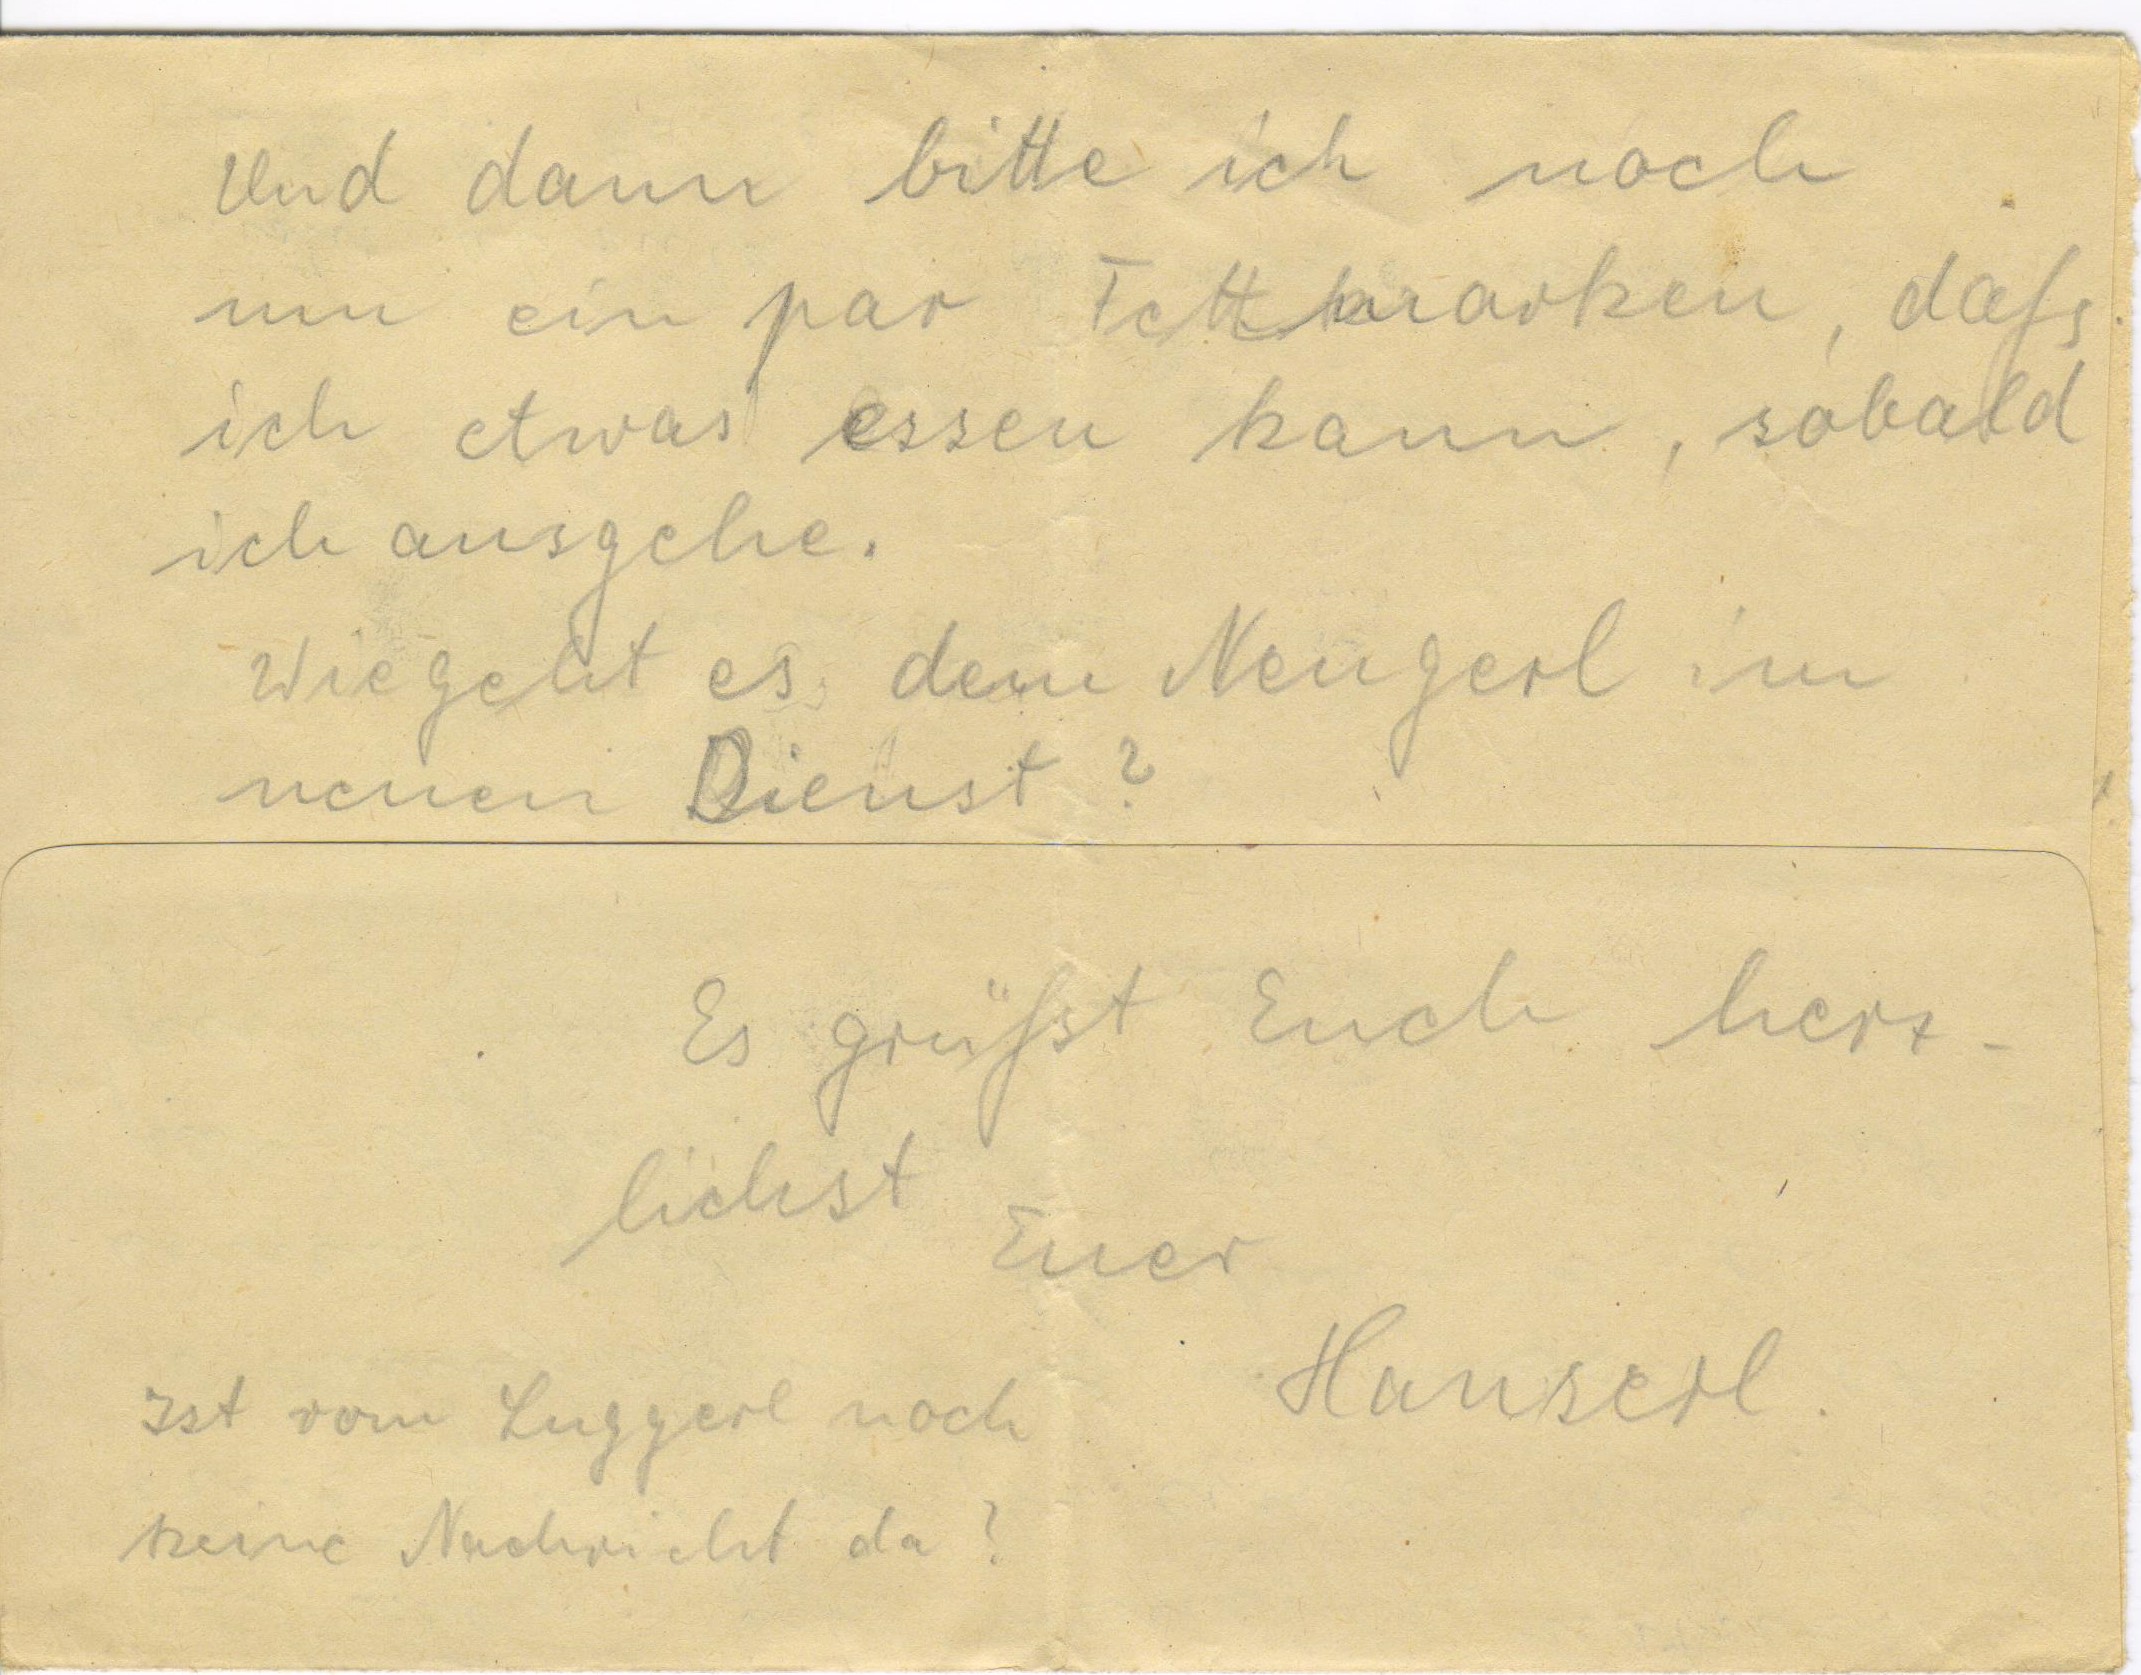 Und dann bitte ich noch
um ein par Fettmarken, dass
ich etwas essen kann, sobald
ich ausgehe.
Wie geht es dem Neugerl im
neuen Dienst?
Es grüsst Euch herz-
lichst
Euer
Hanserl.
Ist vom Luggerl noch
keine Nachricht da?